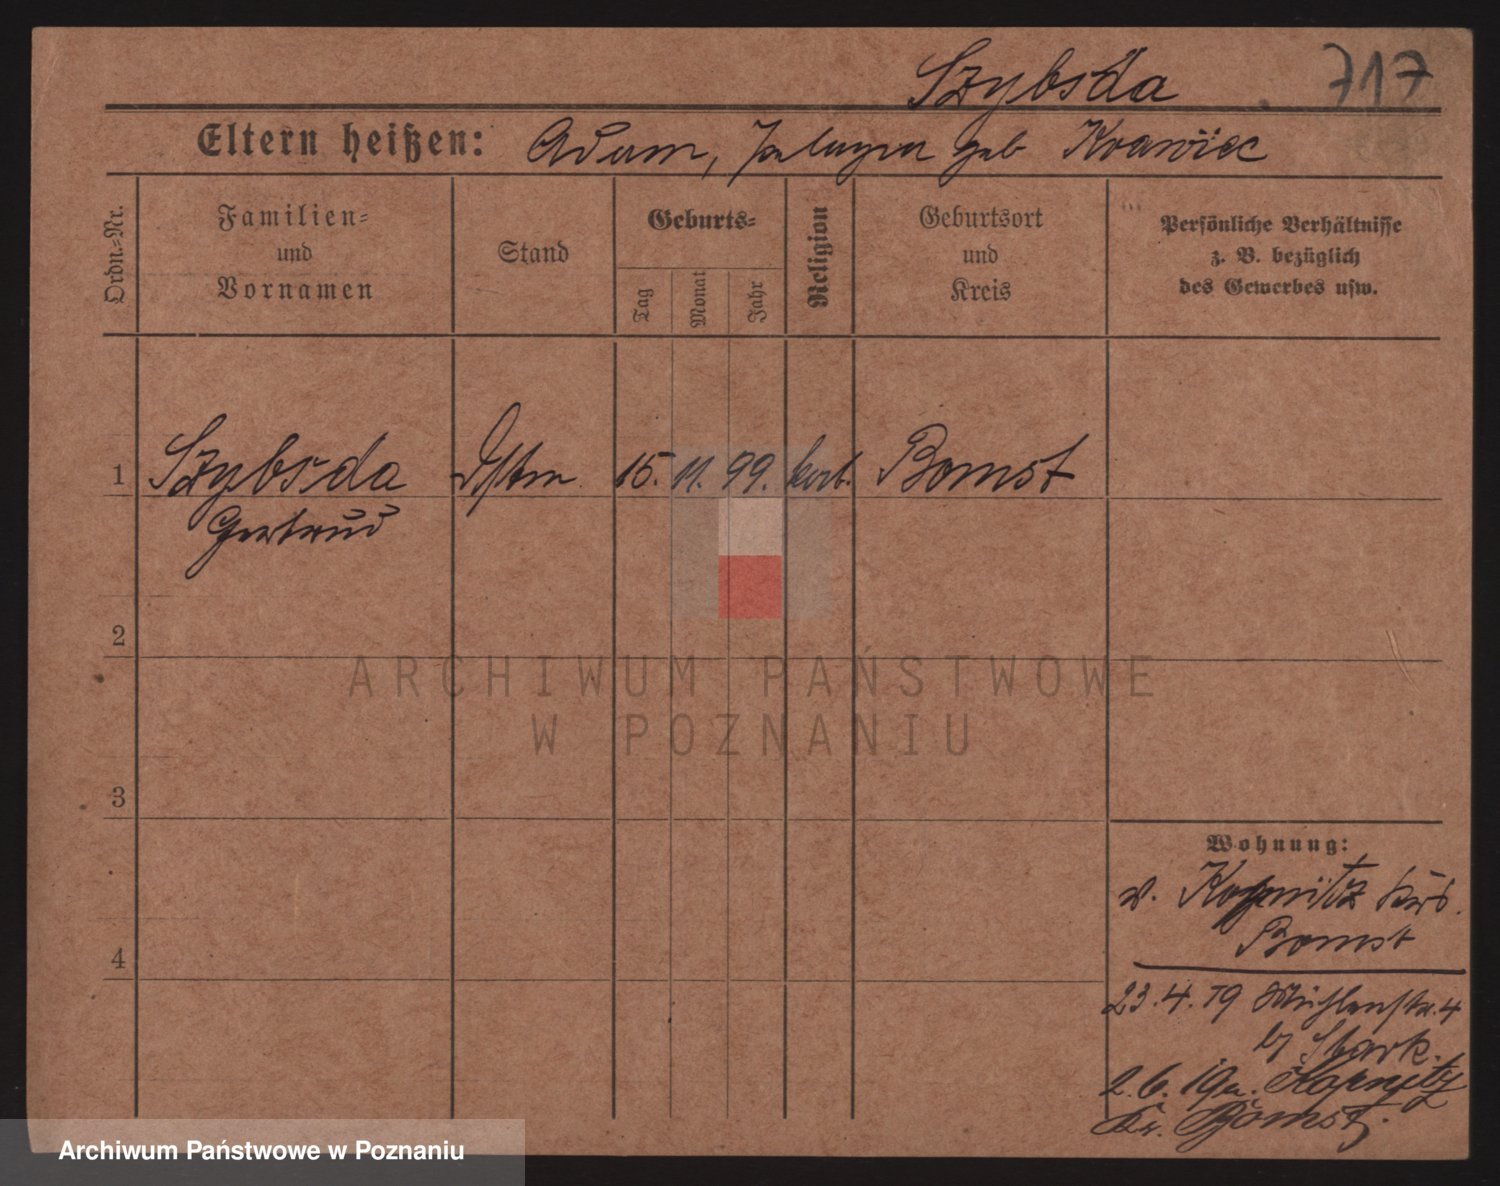 Szybsda 717
Eltern heißen: Adam, geb Krawiec
Ordn.=Nr.
Familien=
und
Vornamen
Stand
Geburts=
Tag
Monat
Jahr
Religion
Geburtsort
und
Kreis
Persönliche Verhältnisse
z. B. bezüglich
des Gewerbes usw.
1 Szybsda 15. 11. 99. kath. Bomst
Gertrud
2
3
4
Wohnung:
v. Kopnitz
Bomst
23.4.19 Mühlenstr. 4
b/ Stark.
2.6.19 n. Kopnitz
Kr. Bomst.
ARCHIWUM PAŃSTWOWE
W POZNANIU
Archiwum Państwowe w Poznaniu